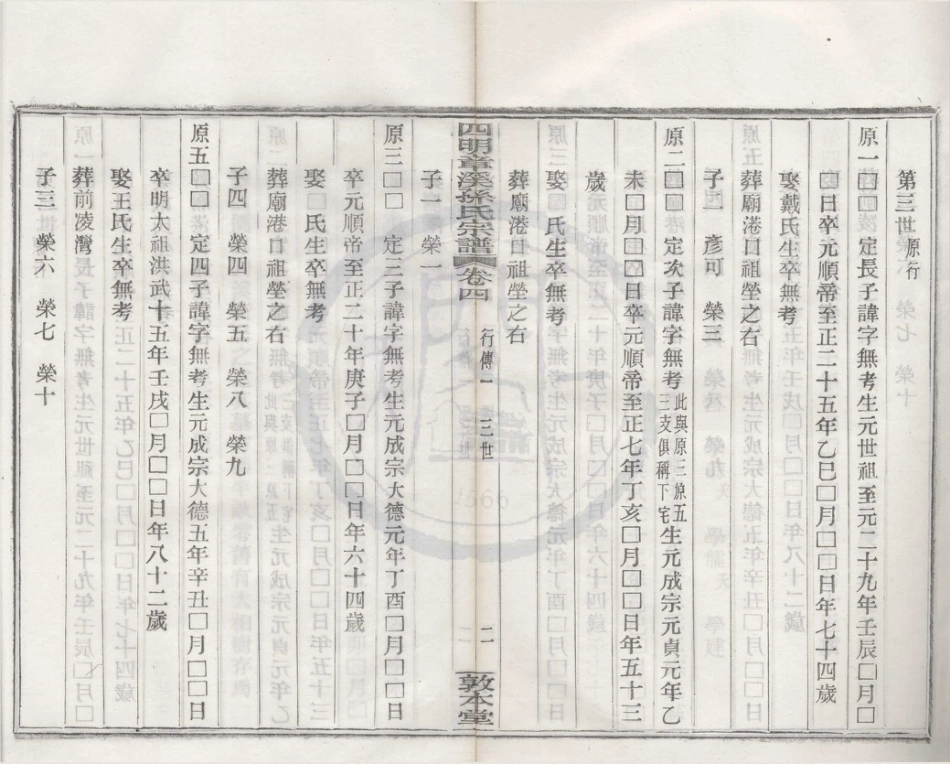 第三世原行
原一□□　定長子諱字無考生元世祖至元二十九年壬辰□月□
□日卒元順帝至正二十五年乙巳□月□□日年七十四歲
娶戴氏生卒無考
葬廟港口祖塋之右
子二　彥可　榮三
原二□□　定次子諱字無考此與原三原五三支俱稱下宅生元成宗元貞元年乙
未□月□□日卒元順帝至正七年丁亥□月□□日年五十三
歲
娶□氏生卒無考
葬廟港口祖塋之右
子一　榮一
四明章溪孫氏宗譜　卷四　行傳一　三世　二　敦本堂
原三□□　定三子諱字無考生元成宗大德元年丁酉□月□□日
卒元順帝至正二十年庚子□月□□日年六十四歲
娶□氏生卒無考
葬廟港口祖塋之右
子四　榮四　榮五　榮八　榮九
原五□□　定四子諱字無考生元成宗大德五年辛丑□月□□日
卒明太祖洪武十五年壬戌□月□□日年八十二歲
娶王氏生卒無考
葬前凌灣
子三　榮六　榮七　榮十